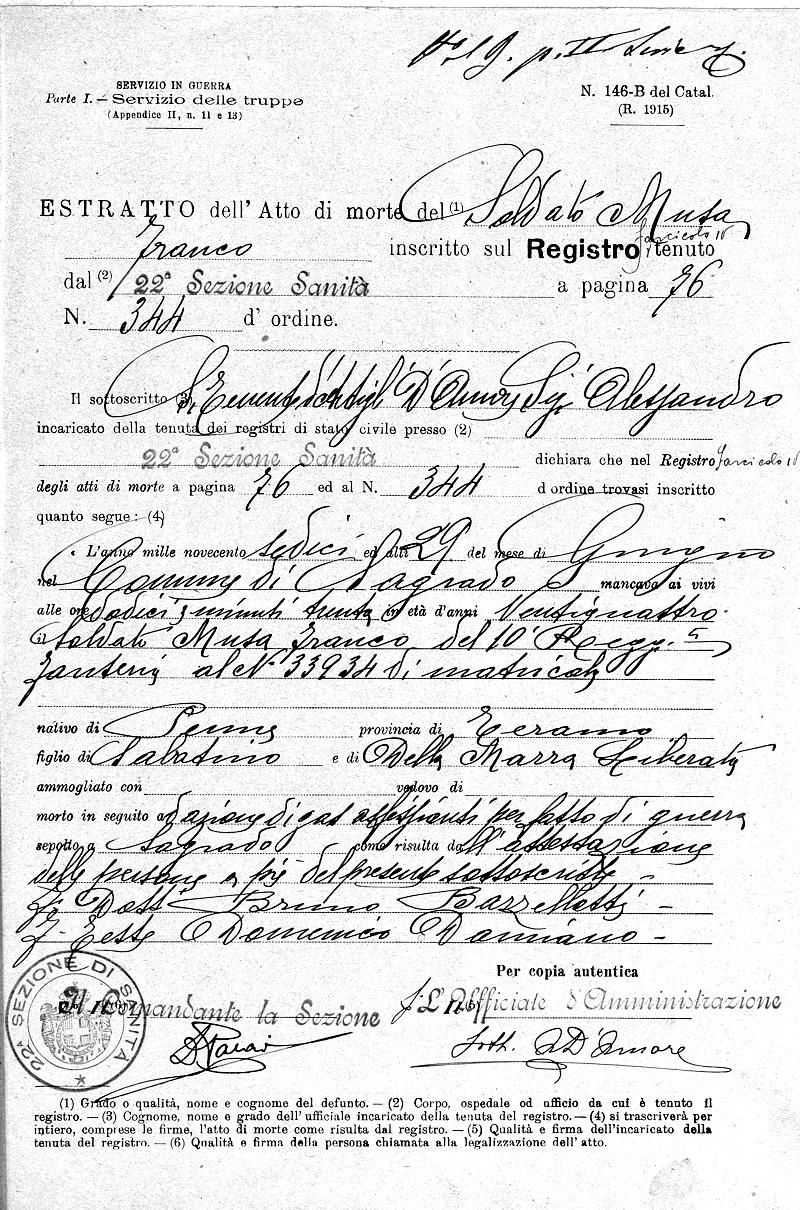 SERVIZIO IN GUERRA
Parte I. — Servizio delle truppe
(Appendice II, n. 11 e 13)
N. 146-B del Catal.
(R. 1915)
ESTRATTO dell' Atto di morte del (1) Soldato Musa
Franco inscritto sul Registro fascicolo 10 tenuto
dal (2) 22ª Sezione Sanità a pagina 76
N. 344 d' ordine.
Il sottoscritto (3) D'Amore Sig. Alessandro
incaricato della tenuta dei registri di stato civile presso (2)
22ª Sezione Sanità dichiara che nel Registro fascicolo 10
degli atti di morte a pagina 76 ed al N. 344 d'ordine trovasi inscritto
quanto segue: (4)
« L'anno mille novecento sedici ed alli 29 del mese di Giugno
nel Comune di Sagrado mancava ai vivi
alle ore dodici e minuti trenta in età d'anni Ventiquattro
il soldato Musa Franco del 10° Regg.
fanteria al N° 33934 di matricola
nativo di Penne provincia di Teramo
figlio di Sabatino e di Della Marra Liberata
ammogliato con vedovo di
morto in seguito ad azione di gas asfissianti per fatto di guerra
sepolto a Sagrado come risulta dall'attestazione
delle persone a piè del presente sottoscritte -
Fo Dott Bruno Barzellotti -
F. Teste Domenico Damiano -
Per copia autentica
Il Comandante la Sezione
f. L'Ufficiale d'Amministrazione
Sott. A D'Amore
22ª SEZIONE DI SANITÀ
(1) Grado o qualità, nome e cognome del defunto. — (2) Corpo, ospedale od ufficio da cui è tenuto il
registro. — (3) Cognome, nome e grado dell' ufficiale incaricato della tenuta del registro. — (4) si trascriverà per
intiero, comprese le firme, l'atto di morte come risulta dal registro. — (5) Qualità e firma dell'incaricato della
tenuta del registro. — (6) Qualità e firma della persona chiamata alla legalizzazione dell' atto.